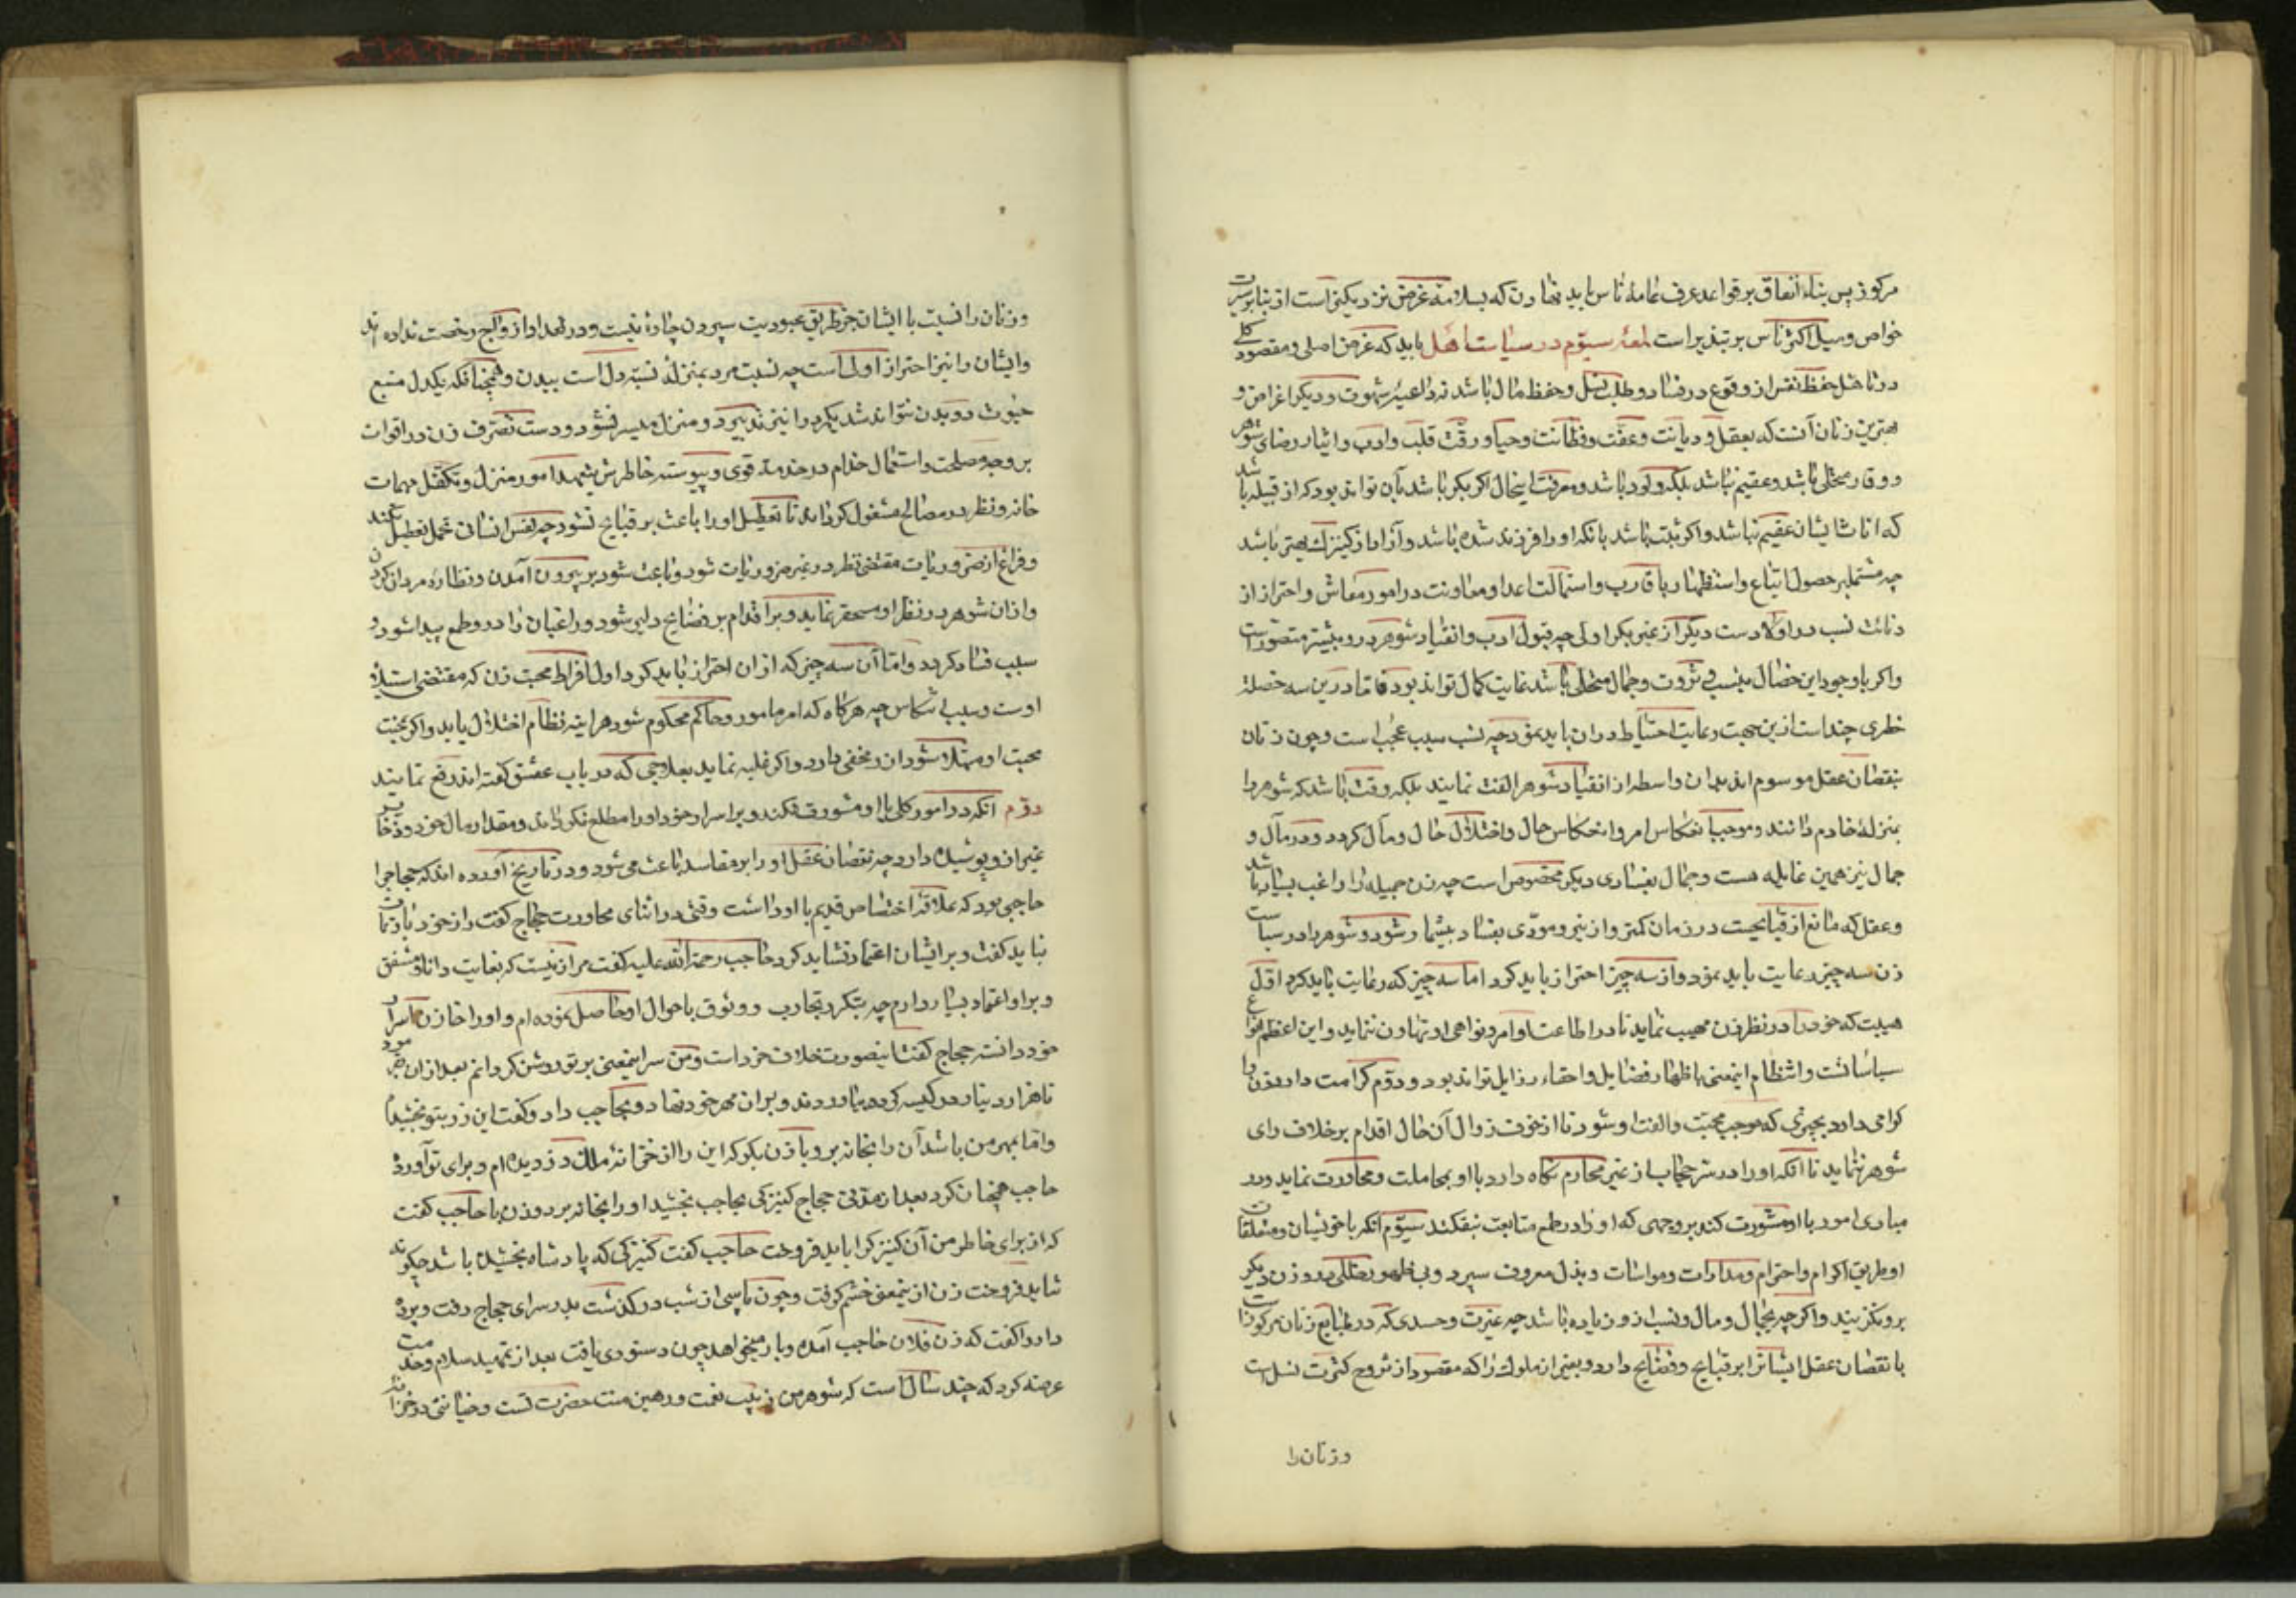 مرکوز پس بناء انفاق بر قواعد عرف عامهٔ ناس باید نهادن که بسلامة غرض نزدیکتر است از بنا بر سیرت
خواص و میل اکثر ناس بر تبذیر است لمعهٔ سیوم در سیاست اهل باید که غرض اصلی و مقصود کلی
در تاهل حفظ نفس از وقوع در فساد و طلب نسل و حفظ مال باشد نه داعیهٔ شهوت و دیگر اغراض و
بهترین زنان آنست که بعقل و دیانت و عفت و فطانت و حیا و رقت قلب و ادب و ایثار رضای شوهر
و وقار متحلی باشد و عقیم نباشد بلکه ولود باشد و معرفت اینحال اگر بکر باشد بآن تواند بود که از قبیله باشد
که اناث ایشان عقیم نباشد و اگر ثیب باشد بانکه او را فرزند شده باشد و آزاد از کنیزک بهتر باشد
چه مشتمل بر حصول اتباع و استظهار باقارب و استمالت اعدا و معاونت در امور معاش و احتراز از
دنائت نسب در اولادست و بکر از غیر بکر اولی چه قبول ادب و انقیاد شوهر درو بیشتر متصورست
و اگر با وجود این خصال بنسب و ثروت و جمال متحلی باشد نهایت کمال تواند بود فاما درین سه خصلة
خطری چند است ازین جهت رعایت احتیاط دران باید نمود چه نسب سبب عجب است و چون زنان
بنقصان عقل موسوم اند بدان واسطه از انقیاد شوهر الفت نمایند بلکه وقت باشد که شوهر را
بمنزلهٔ خادم دانند و موجب انعکاس امر و انحکاس حال و اختلال حال و مآل کردد و در مآل و
جمال نیز همین غایله هست و جمال بفسادی دیگر مخصوص است چه زن جمیله را راغب بسیار باشد
و عقل که مانع از قبایحست در زمان کمتر و از نیرو مودی بفساد بیشمار شود و شوهر را در سیاست
زن سه چیز رعایت باید نمود و از سه چیز احتراز باید کرد اما سه چیز که رعایت باید کرد اول
هیبت که خود را در نظر زن مهیب نماید تا در اطاعت اوامر و نواهی او تهاون ننماید و این اعظم انواع
سیاسانست و انتظام اینمعنی باظهار فضایل و اخفاء رذایل تواند بود و دوم کرامت دارد زن را
گرامی دارد بچیزی که موجب محبت و الفت او شود تا از خوف زوال آن حال اقدام بر خلاف رای
شوهر ننماید تا آنکه او را در ستر حجاب از غیر محارم نگاه دارد با او بمجاملت و محاورت نماید و در
مبادی امور با او مشورت کند بر وجهی که او را در طمع متابعت نیفکند سیوم آنکه با خویشان و متعلقات
او طریق اکرام و احترام و مدارات و مواسات و بذل معروف سپرد و بی ظهور خللی درو زن دیگر
برو نگزیند و اگر چه بجمال و مال و نسب ازو زیاده باشد چه غیرت و حسدی که در طبایع زنان مرکوزست
با نقصان عقل ایشانرا بر قبایح و فضایح دارد و بغیر از ملوک را که مقصود از تزوج کثرت نسل است
و زنان را
و زنان را نسبت با ایشان جز طریق عبودیت سپردن چارهٔ نیست و در تعداد ازواج رخصت نداده اند
و ایشان را نیز احتراز اولی است چه نسبت مرد بمنزل نسبة دل است ببدن و همچنانکه یکدل منبع
حیوت دو بدن نتواند شد یک مرد را نیز تدبیر دو منزل میسر نشود و دست تصرف زن در اقوات
بر وجه مصلحت و استعمال خدام در خدمت قوی و پیوسته خاطرش بتعهد امور منزل و تکفل مهمات
خانه و نظر در مصالح مشغول گرداند تا تعطیل او را باعث بر قبایح نشود چه نفس انسان تحمل تعطیل نکند
و فراغ از ضروریات مقتضی نظر در غیر ضروریات شود و باعث شود بر بیرون آمدن و نظارهٔ مردان کردن
و ازان شوهر در نظر او مستحقر نماید و بر اقدام بر فضایح دلیر شود و راغبان را درو طمع پیدا شود و
سبب فساد کردد و اما آن سه چیز که از ان احتراز باید کرد اول افراط محبت زن که مقتضی استیلا
اوست و سبب انتکاس چه هرگاه که امر مامور و حاکم محکوم شود هراینه نظام اختلال یابد و اگر بمحبت
محبت او مبتلا شود ازو مخفی دارد و اگر غلبه نماید بعلاجی که در باب عشق گفته اند رفع نمایند
دوم آنکه در امور کلی با او مشورة نکند و بر اسرار خود او را مطلع نگرداند و مقدار مال خود و ذخایر
غیر ازو پوشیده دارد چه نقصان عقل او را بر مفاسد باعث می شود و در تاریخ آورده اند که حجاج را
حاجبی بود که علاقهٔ اختصاص قدیم با او داشت وقتی در اثنای محاورت حجاج گفت راز خود با زنان
نباید گفت و بر ایشان اعتماد نشاید کرد حاجب رحمة الله علیه گفت مرا زنیست که بغایت دانا و مشفق
و بر او اعتماد بسیار دارم چه بتکرر تجارب و وثوق باحوال او حاصل نموده ام و او را خازن اسرار
خود دانسته حجاج گفت اینصورت خلاف خرد است و من سر اینمعنی بر تو روشن گردانم بعد ازان فرمود
تا هزار دینار در کیسه کرده بیاوردند و بران مهر خود نهاد و بحاجب داد و گفت این زر بتو بخشیدم
و اما بمهر من باشد آن را بخانه بر و با زن بگو که این را از خزانهٔ ملک دزدیده ام و برای تو آورده
حاجب همچنان کرد بعد از مدتی حجاج کنیزکی بحاجب بخشید او را بخانه برد و زن با حاجب گفت
که از برای خاطر من آن کنیزک را باید فروخت حاجب گفت کنیزکی که پادشاه بخشیده باشد چگونه
شاید فروخت زن ازینمعنی خشم گرفت و چون پاسی از شب درگذشت بدر سرای حجاج رفت و پرده
دار را گفت که زن فلان حاجب آمده و بار میخواهد چون دستوری یافت بعد از تمهید سلام و خدمت
عرضه کرد که چند سال است که شوهر من ربیب نعمت و رهین منت حضرت تست و خیانتی در خزانه